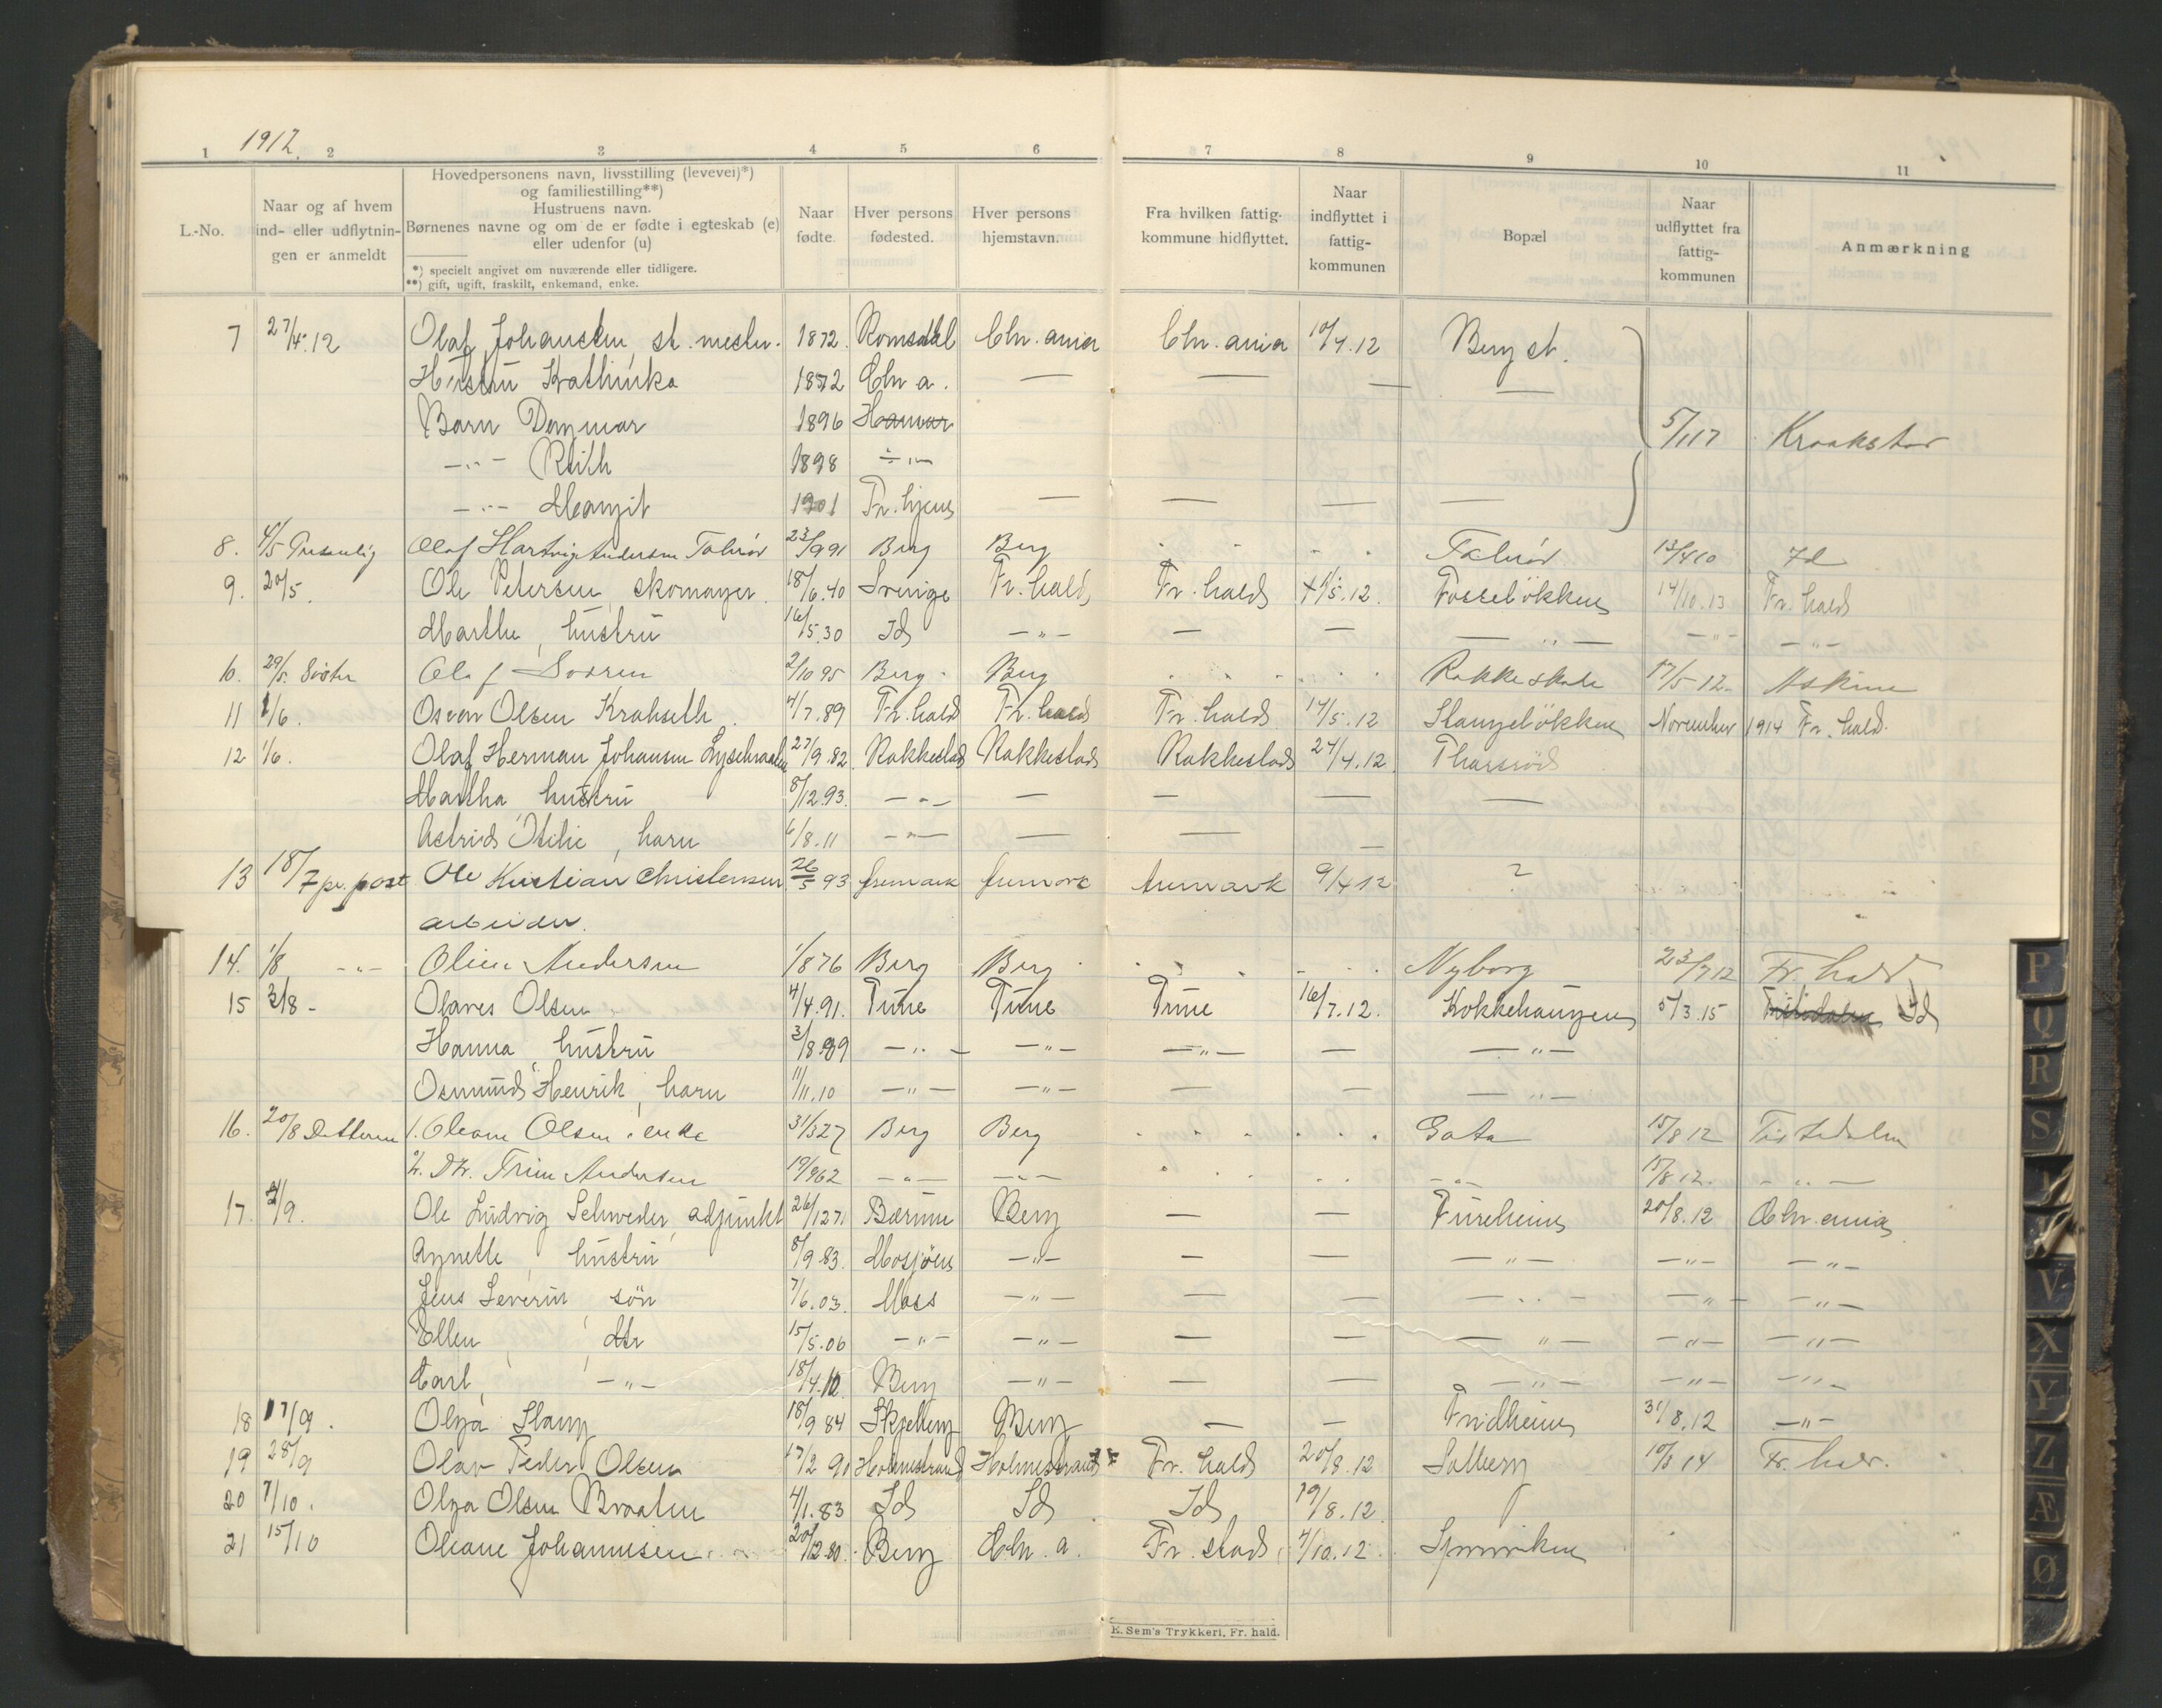 1912.
1 2 3 4 5 6 7 8 9 10 11
L.-No.
Naar og af hvem
ind- eller udflytnin-
gen er anmeldt
Hovedpersonens navn, livsstilling (levevei)*)
og familiestilling**)
Hustruens navn.
Børnenes navne og om de er fødte i egteskab (e)
eller udenfor (u)
*) specielt angivet om nuværende eller tidligere.
**) gift, ugift, fraskilt, enkemand, enke.
Naar
fødte.
Hver persons
fødested.
Hver persons
hjemstavn.
Fra hvilken fattig-
kommune hidflyttet.
Naar
indflyttet i
fattig-
kommunen
Bopæl
Naar
udflyttet fra
fattig-
kommunen
Anmærkning
7 27/4.12 Olaf Johansen, st. mester. 1872. Romsdal Chr. ania Chr. ania 10/4.12 Berg st.
Hustru Kathinka 1872 Chr a. — — — —
Barn Dagmar 1896 Hamar 5/1 17 Kraakstar
-"- Ruth 1898 -"-
-"- Margit 1901 Fr. hjem — — — —
8. 4/5 Personlig Olaf Hartvig Andersen 23/9 91 Berg Berg 13/4 10 Id
9. 20/5. Ole Petersen, skomager. 18/6.40 Sverige Fr. hald Fr. hald 1/5.12. Fosseløkken 14/10.13 Fr. hald
Marthe, hustru 16/5.30 Id -"- — — -"- -"- -"-
10. 29/5. Olaf 2/10 95 Berg Berg Rakkestade 17/5-12. Askim
11 1/6. Oscar Olsen Krahseth. 4/7.89 Fr. hald Fr. hald Fr. hald 14/5.12 Stangeløkken November 1914 Fr. hald.
12 1/6. Olaf Herman Johansen 27/9.82. Rakkestad Rakkestad Rakkestad 24/4.12.
Martha, hustru 8/12.93. -"- — — — —
Astrid Otilie, barn 6/8.11 -"- — — —
13 18/7 pr. post Ole Kristian Christensen 26/5 93 Aremark Aremark Aremark 9/4 12 ?
arbeider.
14. 1/8 -"- Andersen 1/8 76 Berg Berg Nyborg 23/7 12 Fr. hald
15 3/8 - Olaves Olsen 4/4.91. Tune Tune Tune 16/7.12. Kokkehaugen 5/3.15 Id
Hanna, hustru 3/8.89 -"- -"- -"- — -"-
Osmund Henrik, barn 11/11.10 -"- -"- — — -"-
16. 20/8 Datteren 1. Oleane Olsen, enke 31/3 27 Berg Berg Gata 15/8 12 Tistedalen
2. Dtr. Trine Andersen 19/9 62 -"- -"- -"- 15/8 12. -"-
17. 2/9. Ole Ludvig Schweder, adjunkt 26/12 71 Bærum Berg — — Fureheim 20/8.12 Chr. ania
Agnethe, hustru 8/9.83. Mosjøen -"- — — -"- -"- -"-
Jens Severin, søn 7/6.03. Moss -"- — — -"- -"- -"-
Ellen, dtr 15/5.06 -"- -"- — — -"- -"- -"-
Carl, -"- 18/4.10. Berg -"- — — -"- -"- -"-
18 17/9. Olga Stang 18/9 84 Skjeberg Berg — — Fridheim 31/8.12 -"-
19 28/9 Olav Peder Olsen 17/2 90 Holmestrand Holmestrand Fr. hald 20/8.12 Solberg 10/3 14 Fr. hald.
20 7/10. Olga Olsen Braaten 4/1.83 Id Id Id 19/8.12.
21 15/10 Oleane Johannesen 20/12.80. Berg Chr. a. Fr. stad 4/10.12
E. Sem's Trykkeri, Fr. hald.
P
Q
R
S
V
X
Y
Z
Æ
Ø